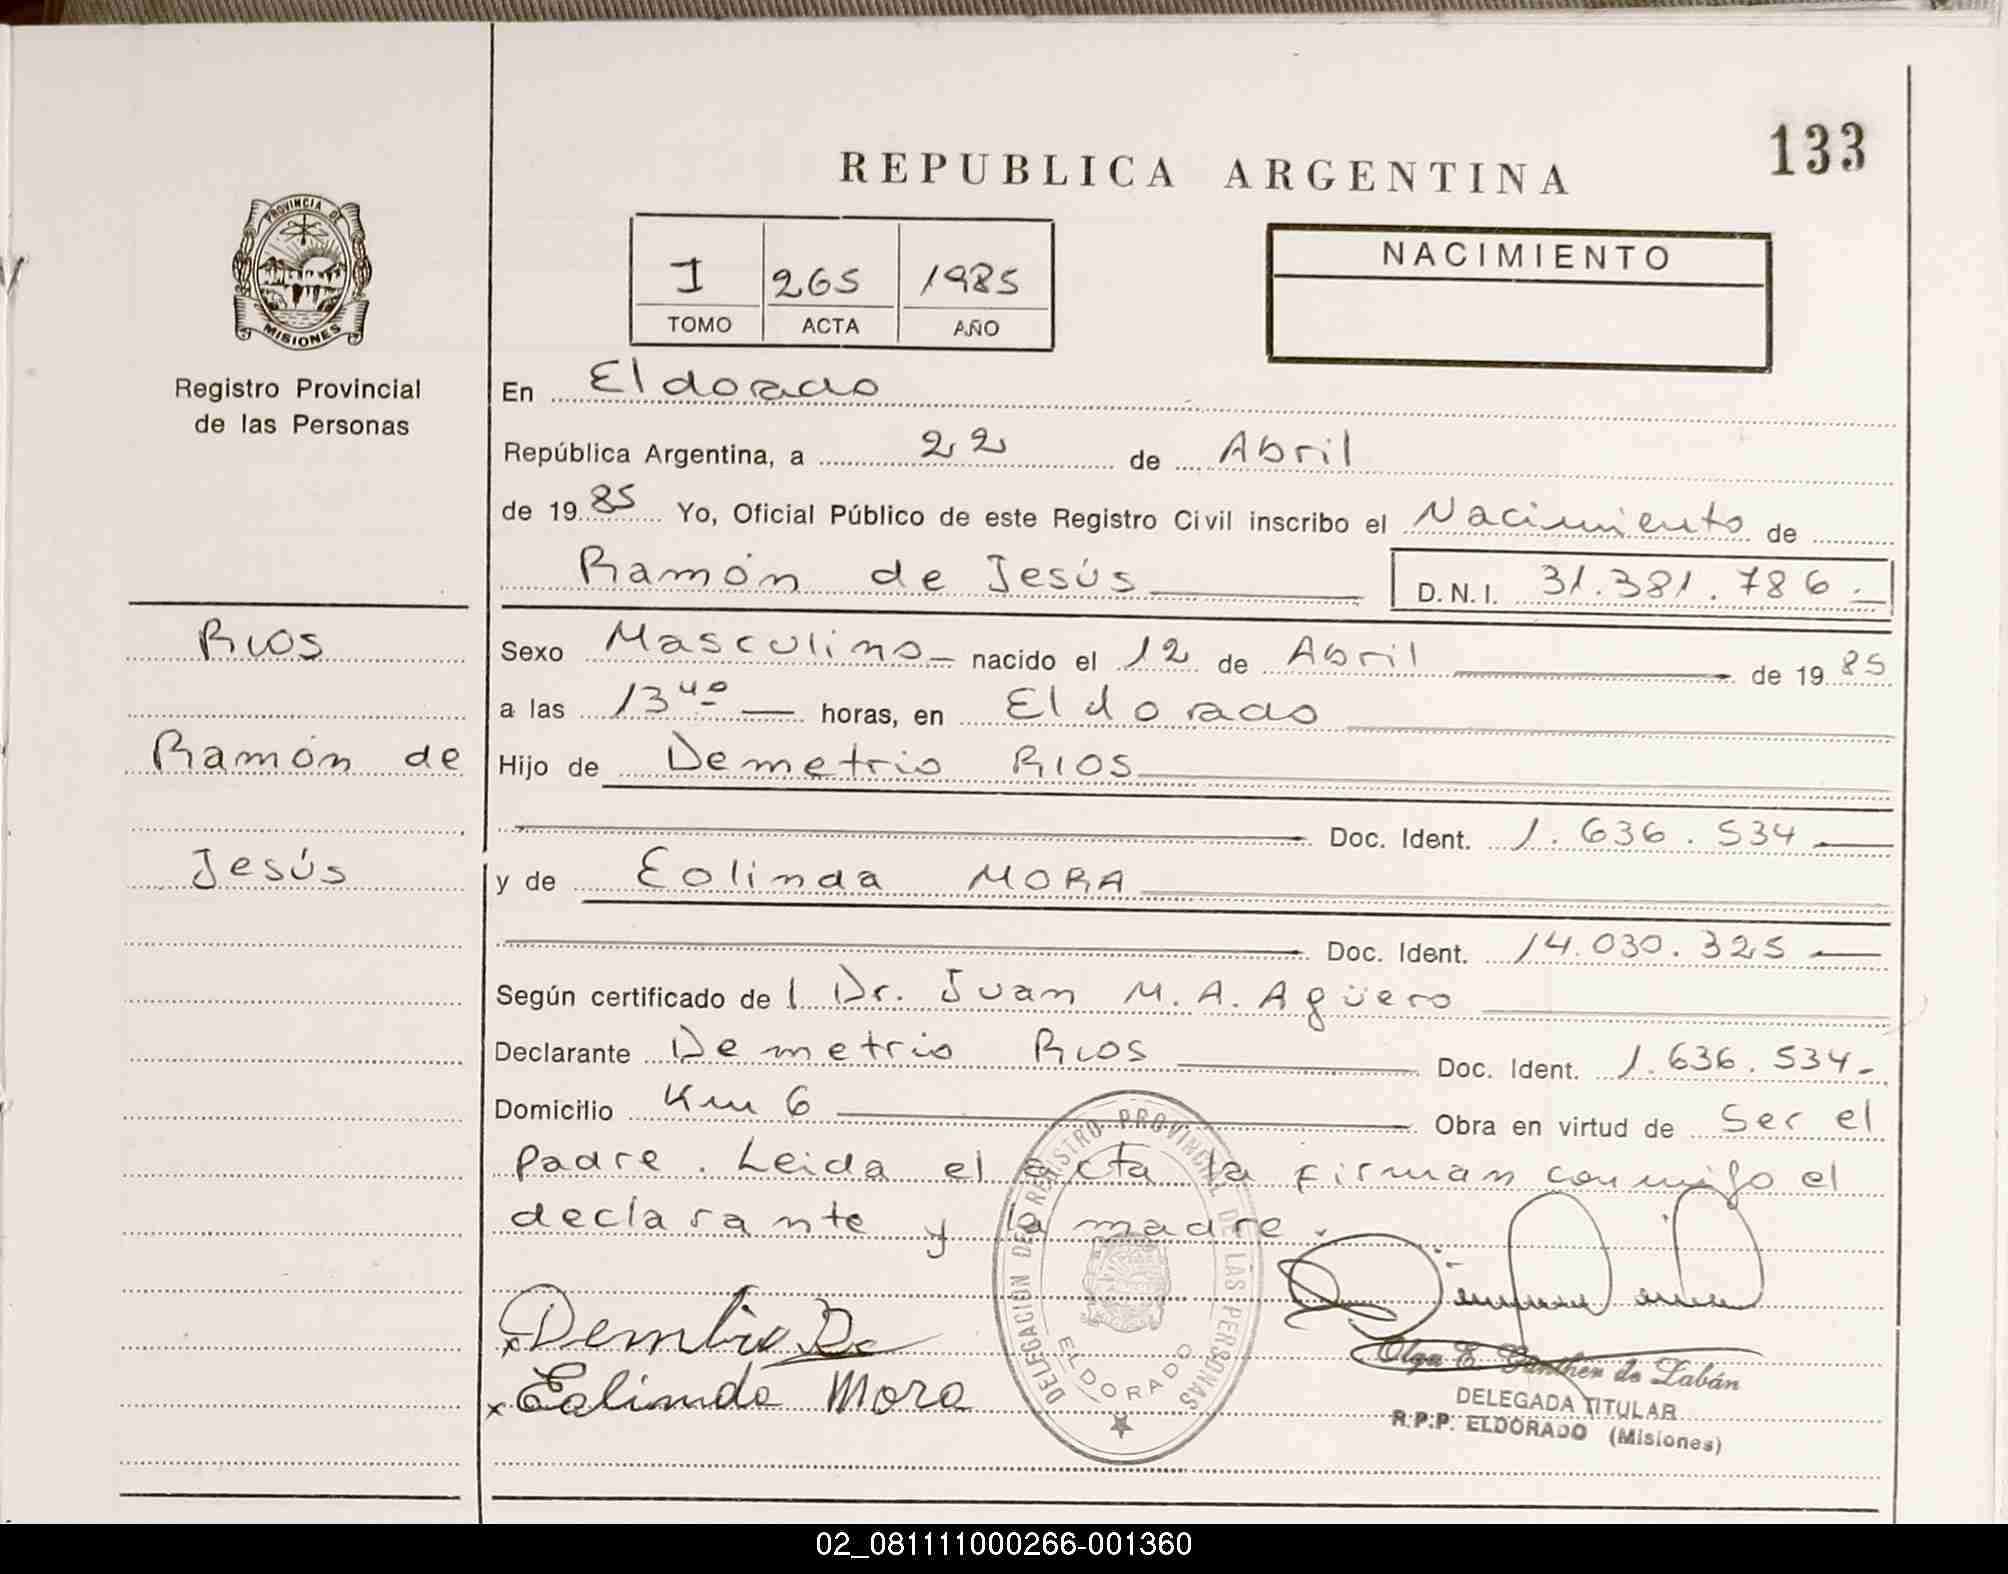 133
REPUBLICA ARGENTINA
PROVINCIA DE
MISIONES
Registro Provincial
de las Personas
I 265 1985
TOMO ACTA AÑO
NACIMIENTO
En Eldorado
República Argentina, a 22 de Abril
de 1985 Yo, Oficial Público de este Registro Civil inscribo el Nacimiento de
Ramón de Jesús D.N.I. 31.381.786.-
Rios
Sexo Masculino- nacido el 12 de Abril de 1985
a las 13 40 horas, en Eldorado
Ramón de
Hijo de Demetrio RIOS
Doc. Ident. 1.636.534
Jesús
y de Eolinda MORA
Doc. Ident. 14.030.325
Según certificado de l Dr. Juan M. A. Agüero
Declarante Demetrio Rios Doc. Ident. 1.636.534-
Domicilio Km 6 Obra en virtud de Ser el
padre. Leida el acta la firman conmigo el
declarante y la madre.
DELEGACION DEL REGISTRO PROVINCIAL DE LAS PERSONAS
ELDORADO
x
x Eolinda Mora
Olga E. Günther de Zabán
DELEGADA TITULAR
R.P.P. ELDORADO (Misiones)
02_081111000266-001360